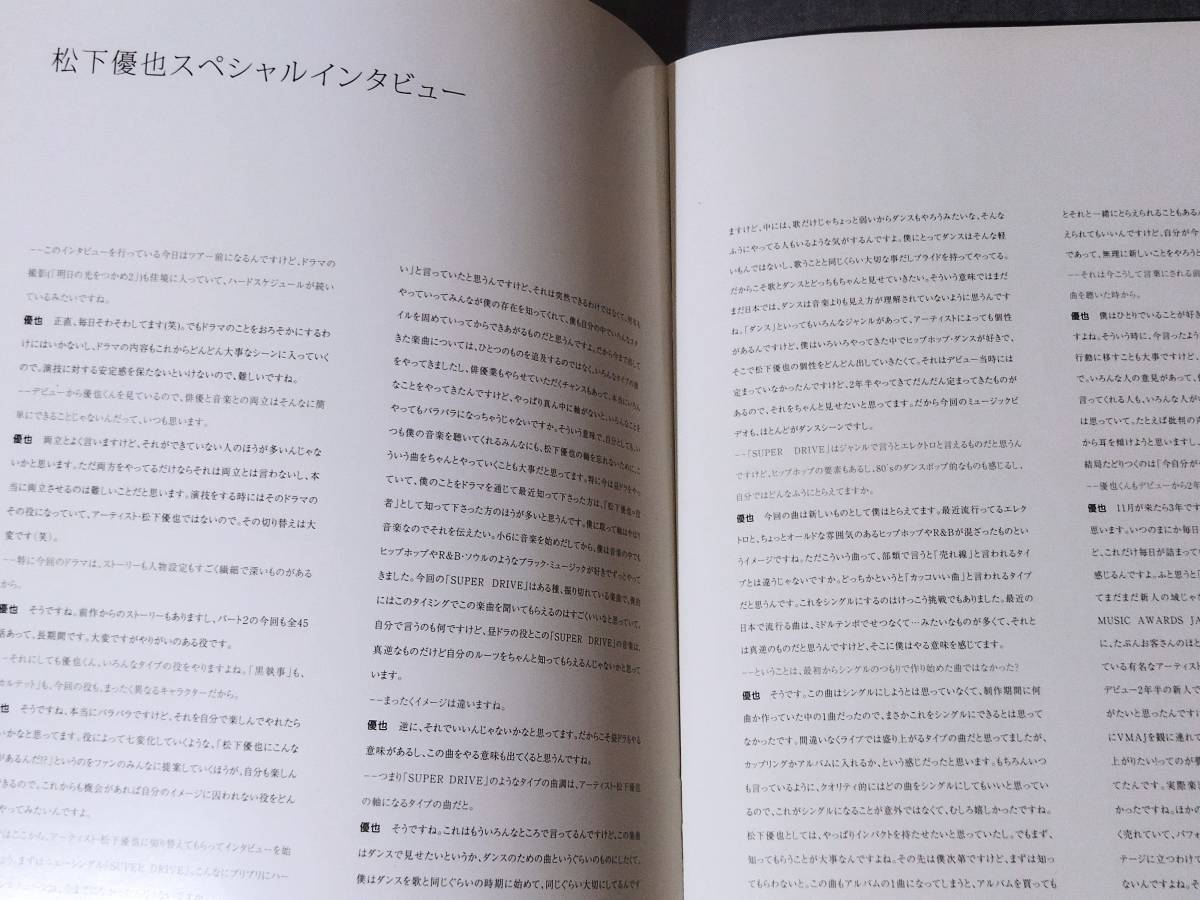 松下優也スペシャルインタビュー
――このインタビューを行っている今日はツアー前になるんですけど、ドラマの
撮影(「明日の光をつかめ2」)も佳境に入っていて、ハードスケジュールが続い
ているみたいですね。
優也　正直、毎日そわそわしてます(笑)。でもドラマのことをおろそかにするわ
けにはいかないし、ドラマの内容もこれからどんどん大事なシーンに入っていく
ので。演技に対する安定感を保たないといけないので、難しいですね。
――デビューから優也くんを見ているので、俳優と音楽との両立はそんなに簡
単にできることじゃないんだって、いつも思います。
優也　両立とよく言いますけど、それができていない人のほうが多いんじゃな
いかと思います。ただ両方をやってるだけならそれは両立とは言わないし、本
当に両立させるのは難しいことだと思います。演技をする時にはそのドラマの
その役になっていて、アーティスト・松下優也ではないので。その切り替えは大
変です(笑)。
――特に今回のドラマは、ストーリーも人物設定もすごく繊細で深いものがある
から。
優也　そうですね。前作からのストーリーもありますし、パート2の今回も全45
話あって、長期間です。大変ですがやりがいのある役です。
――それにしても優也くん、いろんなタイプの役をやりますよね。「黒執事」も、
カルテット」も、今回の役も、まったく異なるキャラクターだから。
也　そうですね、本当にバラバラですけど、それを自分で楽しんでやれたら
いかなと思ってます。役によって七変化していくような、「松下優也にこんな
があるんだ!?」というのをファンのみんなに提案していくほうが、自分も楽しん
できるので、これからも機会があれば自分のイメージに囚われない役をどん
やってみたいんですよ。
はここから、アーティスト松下優也に切り替えてもらってインタビューを始
ょう。まずはニューシングル「SUPER DRIVE」。こんなにブリブリにハー
い」と言っていたと思うんですけど、それは突然できるわけではなくて、何年も
やっていってみんなが僕の存在を知ってくれて、僕も自分の中でいろんなスタ
イルを固めていってからできあがるものだと思うんですよ。だから今まで出して
きた楽曲については、ひとつのものを追及するのではなく、いろんなタイプの曲
をやってきましたし、俳優業もやらせていただくチャンスもあって、本当にいろん
なことをやってきたんですけど、やっぱり真ん中に軸がないと、いろんなことを
やってもバラバラになっちゃうじゃないですか。そういう意味で、自分としても、い
つも僕の音楽を聴いてくれるみんなにも、松下優也の軸を忘れないために、こ
ういう曲をちゃんとやっていくことも大事だと思ってます。特に今は昼ドラをやっ
ていて、僕のことをドラマを通じて最近知って下さった方は、「松下優也=役
者」として知って下さった方のほうが多いと思うんです。僕に取って軸はやはり
音楽なのでそれを伝えたい。小6に音楽を始めだしてから、僕は音楽の中でも
ヒップホップやR&B・ソウルのようなブラック・ミュージックが好きでずっとやって
きました。今回の「SUPER DRIVE」はある種、振り切れている楽曲で、僕的
にはこのタイミングでこの楽曲を聞いてもらえるのはすごくいいなと思っていて。
自分で言うのも何ですけど、昼ドラの役とこの「SUPER DRIVE」の音楽は、
真逆なものだけど自分のルーツをちゃんと知ってもらえるんじゃないかと思って
います。
――まったくイメージは違いますね。
優也　逆に、それでいいんじゃないかなと思ってます。だからこそ昼ドラもやる
意味があるし、この曲をやる意味も出てくると思うんですね。
――つまり「SUPER DRIVE」のようなタイプの曲調は、アーティスト・松下優也
の軸になるタイプの曲だと。
優也　そうですね。これはもういろんなところで言ってるんですけど、この楽曲
はダンスで見せたいというか、ダンスのための曲というぐらいのものにしたくて。
僕はダンスを歌と同じぐらいの時期に始めて、同じぐらい大切にしてるんです
ますけど、中には、歌だけじゃちょっと弱いからダンスもやろうみたいな、そんな
ふうにやってる人もいるような気がするんですよ。僕にとってダンスはそんな軽
いもんではないし、歌うことと同じくらい大切な事だしプライドを持ってやってる。
だからこそ歌とダンスとどっちもちゃんと見せていきたい。そういう意味ではまだ
まだ日本では、ダンスは音楽よりも見え方が理解されていないように思うんです
ね。「ダンス」といってもいろんなジャンルがあって、アーティストによっても個性
があるんですけど、僕はいろいろやってきた中でヒップホップ・ダンスが好きで、
そこで松下優也の個性をどんどん出していきたくて。それはデビュー当時には
定まっていなかったんですけど、2年半やってきてだんだん定まってきたものが
あるので、それをちゃんと見せたいと思ってます。だから今回のミュージックビ
デオも、ほとんどがダンスシーンですし。
――「SUPER DRIVE」はジャンルで言うとエレクトロと言えるものだと思うん
ですけど、ヒップホップの要素もあるし、80'sのダンスポップ的なものも感じるし、
自分ではどんなふうにとらえてますか。
優也　今回の曲は新しいものとして僕はとらえてます。最近流行ってるエレク
トロと、ちょっとオールドな雰囲気のあるヒップホップやR&Bが混ざったものとい
うイメージですね。ただこういう曲って、部類で言うと「売れ線」と言われるタイ
プとは違うじゃないですか。どっちかというと「カッコいい曲」と言われるタイプ
だと思うんです。これをシングルにするのはけっこう挑戦でもありました。最近の
日本で流行る曲は、ミドルテンポでせつなくて…みたいなものが多くて、それと
は真逆のものだと思うんですけど、そこに僕はやる意味を感じてます。
――ということは、最初からシングルのつもりで作り始めた曲ではなかった?
優也　そうです。この曲はシングルにしようとは思っていなくて、制作期間に何
曲か作っていた中の1曲だったので、まさかこれをシングルにできるとは思って
なかったです。間違いなくライブでは盛り上がるタイプの曲だと思ってましたが、
カップリングかアルバムに入れるか、という感じだったと思います。もちろんいつ
も言っているように、クオリティ的にはどの曲をシングルにしてもいいと思ってい
るので、これがシングルになることが意外ではなくて、むしろ嬉しかったですね。
松下優也としては、やっぱりインパクトを持たせたいと思っていたし。でもまず、
知ってもらうことが大事なんですよね。その先は僕次第ですけど、まずは知っ
てもらわないと。この曲もアルバムの1曲になってしまうと、アルバムを買っても
とそれと一緒にとらえられることもある
えられてもいいんですけど、自分が今
であって、無理に新しいことをやろうと
――それは今こうして言葉にされる前
曲を聴いた時から。
優也　僕はひとりでいることが好き
すよね。そういう時に、今言ったよう
行動に移すことも大事ですけど、
で。いろんな人の意見があって、僕
言ってくれる人も、いろんな人がい
は思っていて。たとえば批判の声
から耳を傾けようと思いますし、
結局たどりつくのは「今自分が
――優也くんもデビューから2年
優也　11月が来たら3年です
思います。いつのまにか毎日
ど、これだけ毎日が詰まって
感じるんですよ。ふと思うと「
てまだまだ新人の域じゃな
MUSIC AWARDS JA
に、たぶんお客さんのほと
ている有名なアーティスト
デビュー2年半の新人で
がたいと思ったんですけ
にVMAJを観に連れて
上がりたい!ってのが夢
てたんです。実際楽
かったですね。ほかの
く売れていて、パフォ
テージに立つわけで
ないんですよね。そ